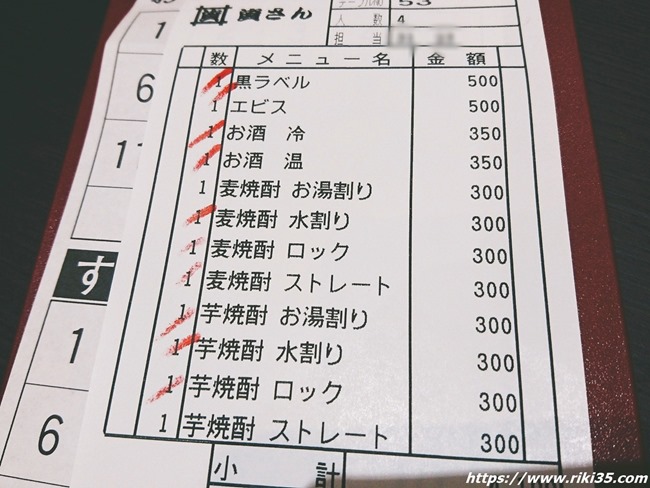 資さん
テーブル(様) 53
人数 4
担当
数 メニュー名 金額
1 黒ラベル 500
1 エビス 500
1 お酒 冷 350
1 お酒 温 350
1 麦焼酎 お湯割り 300
1 麦焼酎 水割り 300
1 麦焼酎 ロック 300
1 麦焼酎 ストレート 300
1 芋焼酎 お湯割り 300
1 芋焼酎 水割り 300
1 芋焼酎 ロック 300
1 芋焼酎 ストレート 300
小計
6
11
す
1
6
https://www.riki35.com